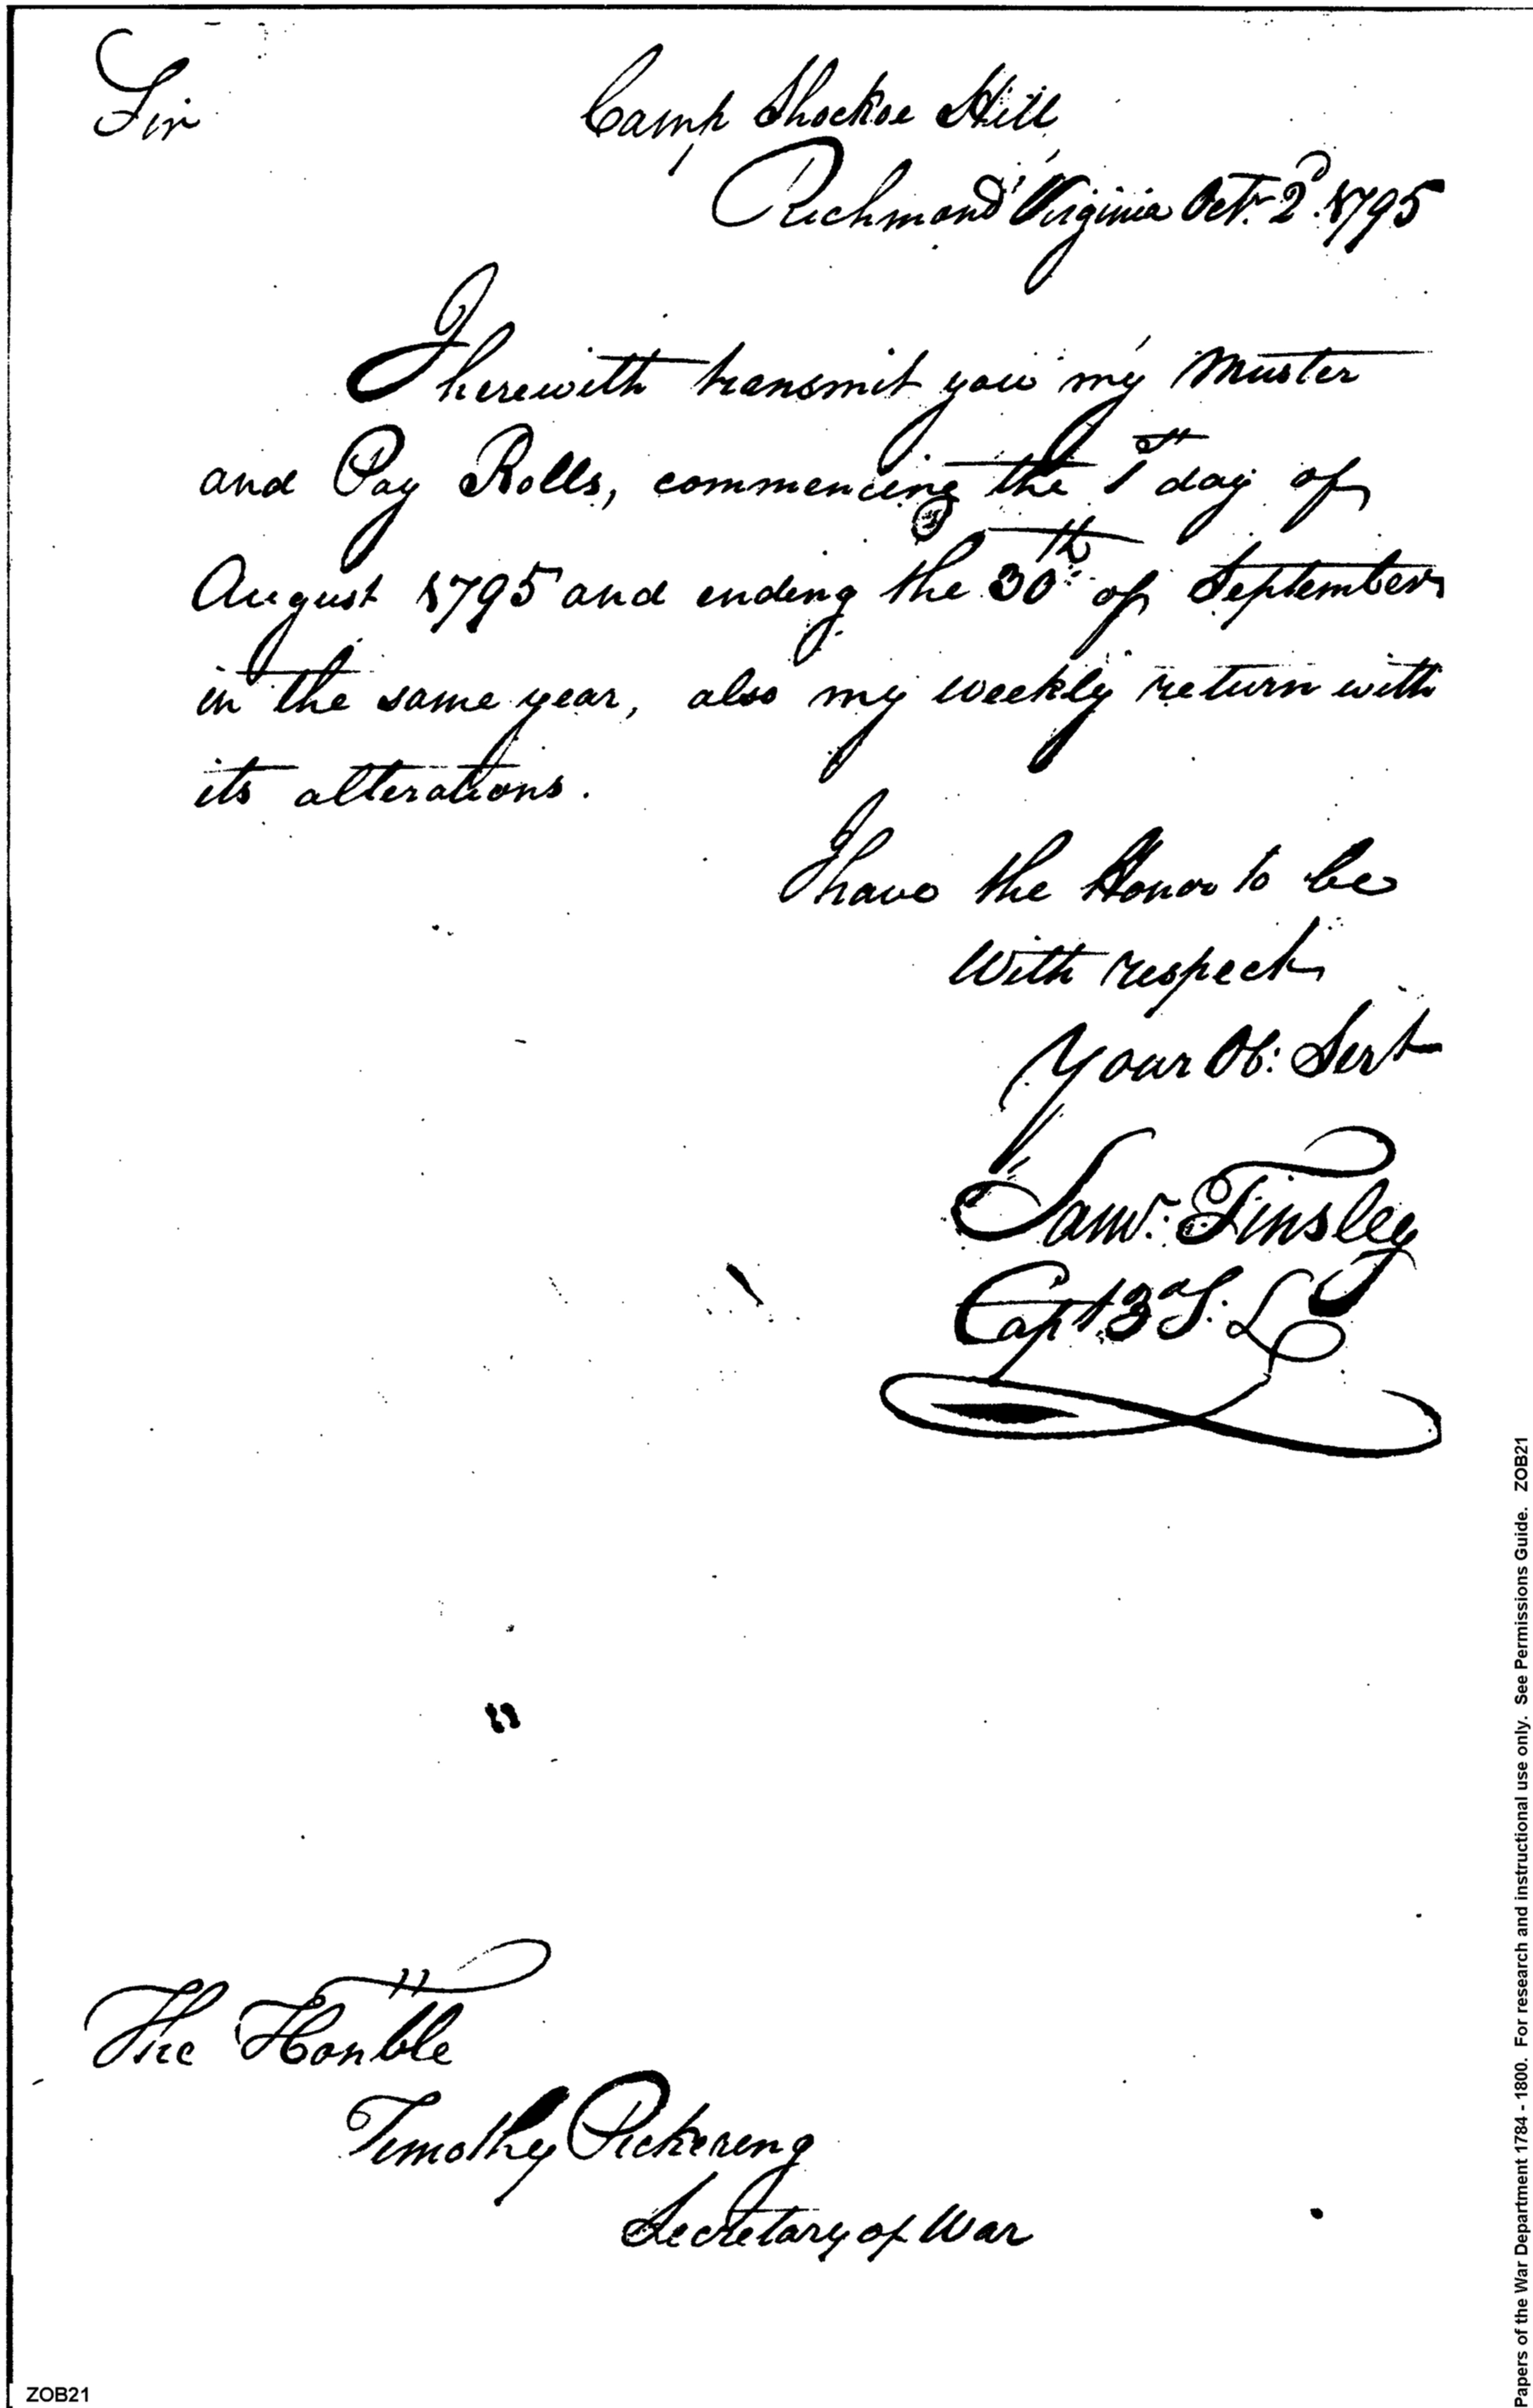 Sir
Camp Shockoe Hill
Richmond Virginia Octr. 2d. 1795
I herewith transmit you my Muster
and Pay Rolls, commencing the 1st day of
August 1795 and ending the 30th of September
in the same year, also my weekly return with
its alterations.
I have the Honor to be
With respect
Your Ob: Servt
Saml. Tinsley
Capt 3d S: L
The Honble
Timothy Pickering
Secretary of War
ZOB21
Papers of the War Department 1784 - 1800. For research and instructional use only. See Permissions Guide. ZOB21